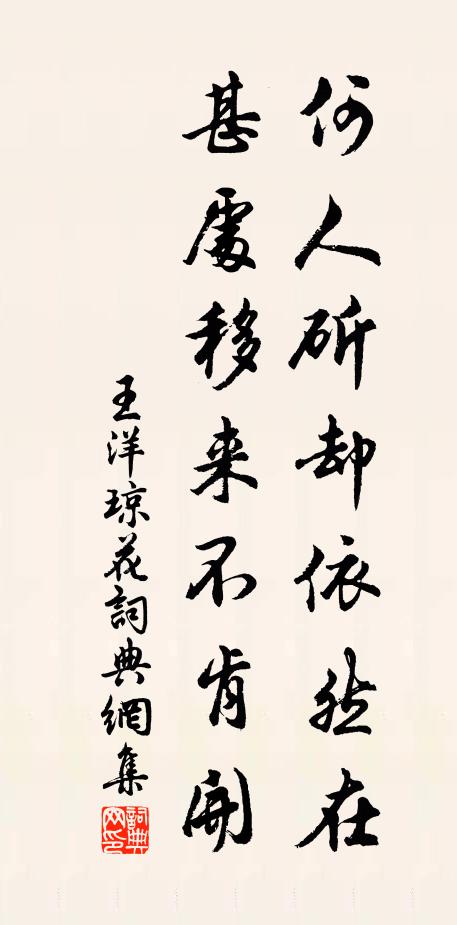 何人斫却依然在
甚處移来不肯開
王洋琼花詞典網集
詞典
网印